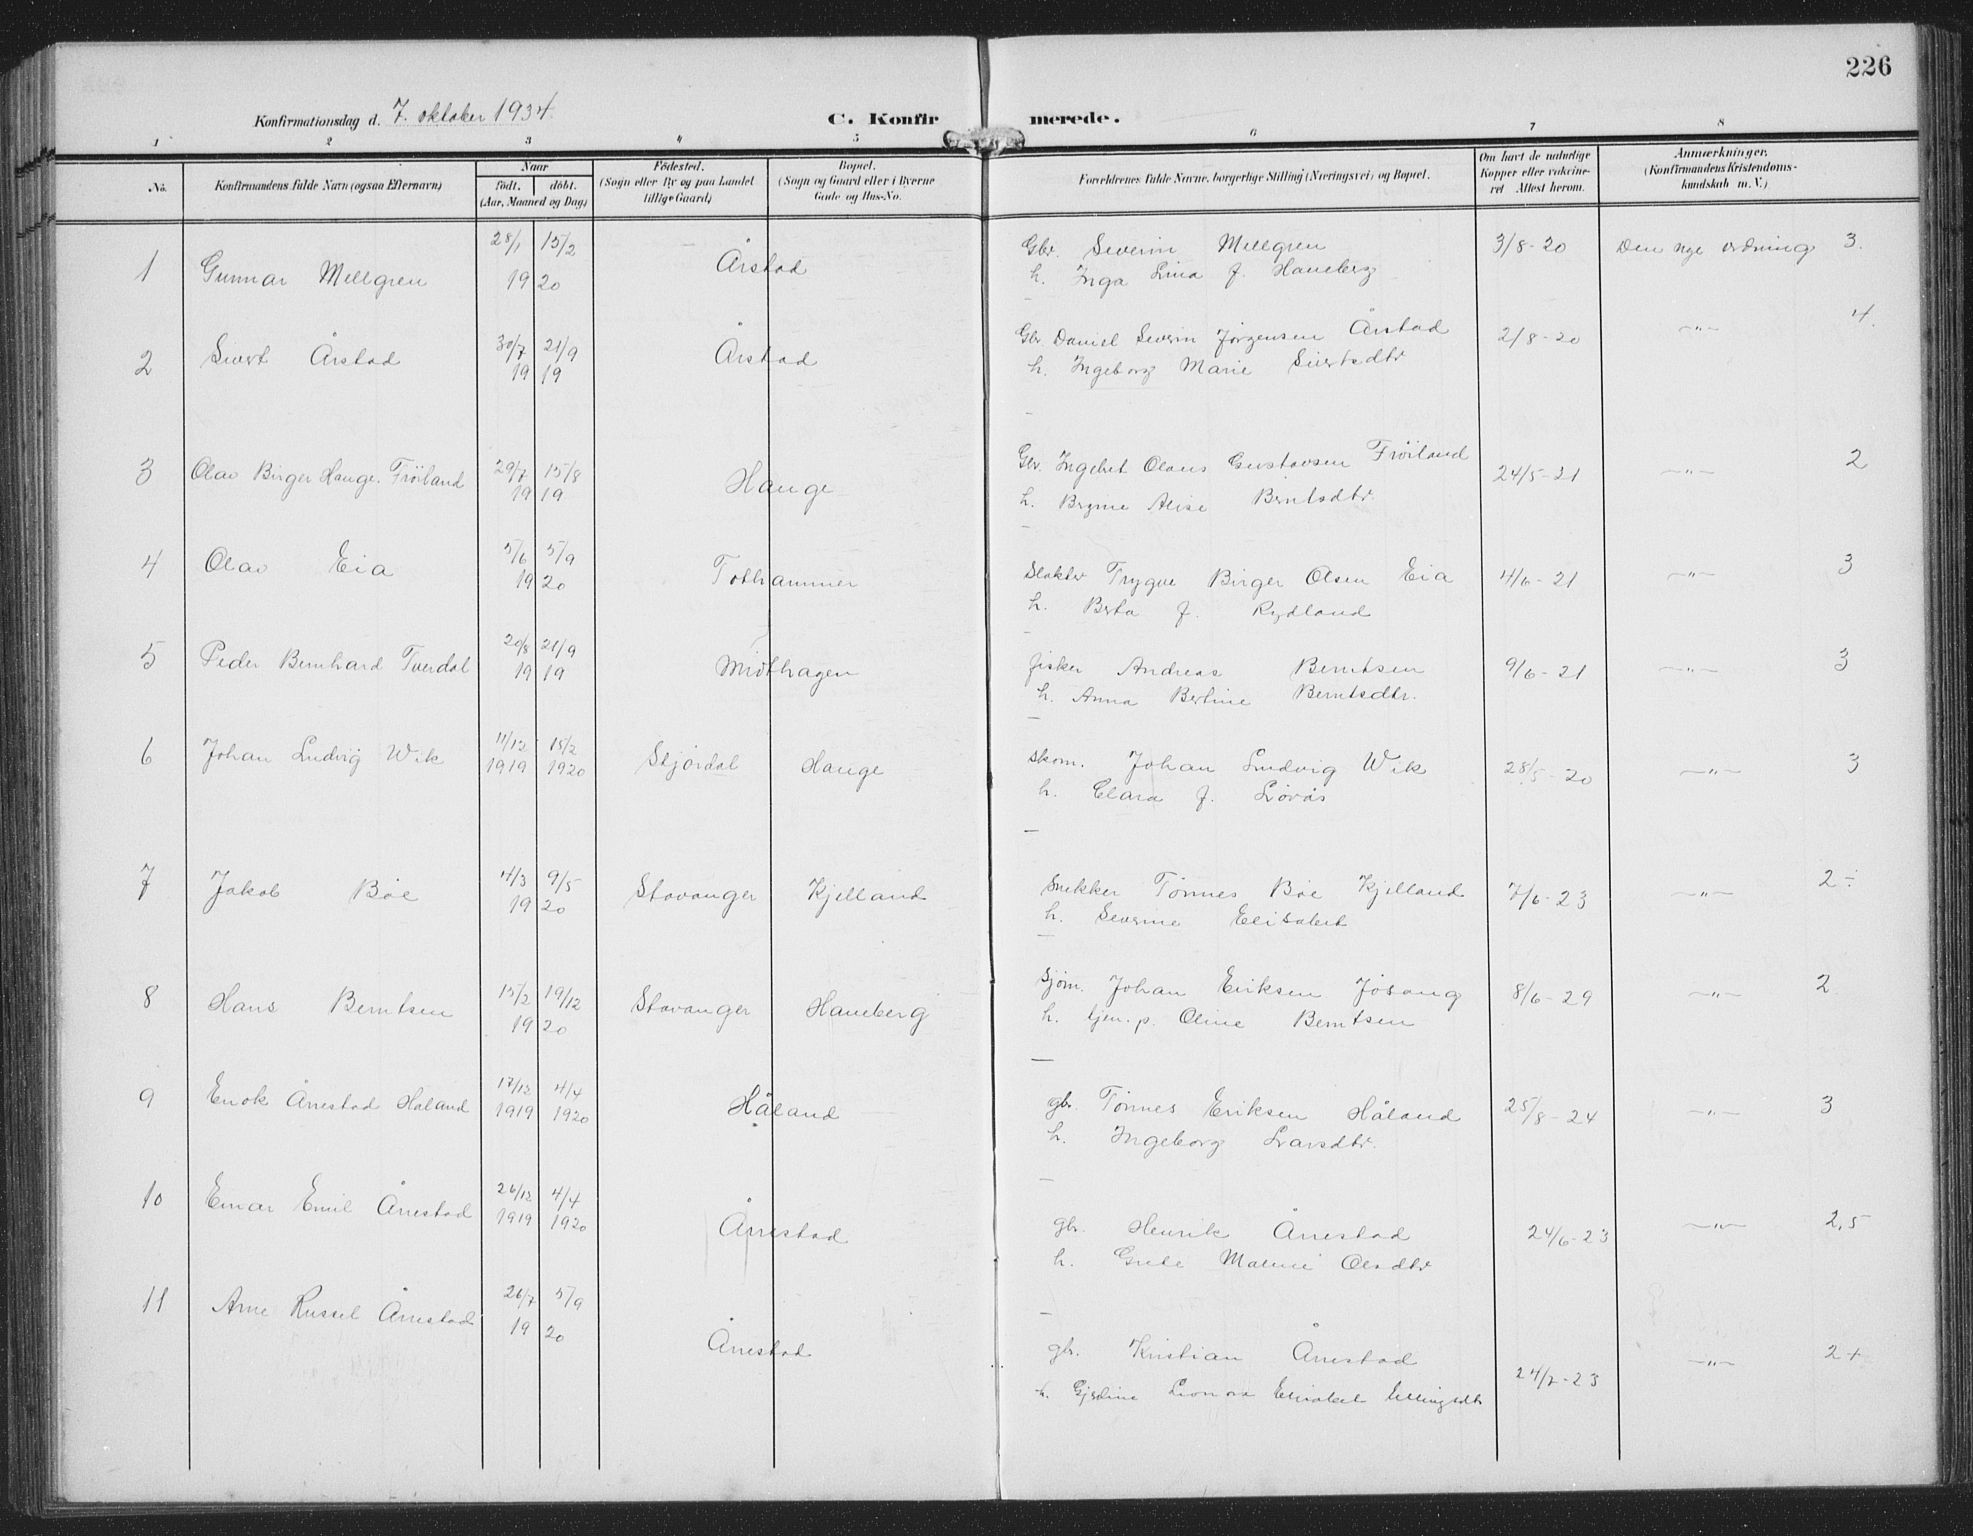 226
Konfirmationsdag d. 7. oktober 1934.
C. Konfirmerede.
1 2 3 4 5 6 7 8
No.
Konfirmandens fulde Navn (ogsaa Efternavn)
Naar
født. døbt.
(Aar, Maaned og Dag)
Fødested.
(Sogn eller By og paa Landet
tillige Gaard)
Bopæl.
(Sogn og Gaard eller i Byerne
Gade og Hus-No.
Forældrenes fulde Navne, borgerlige Stilling (Næringsvei) og Bopæl.
Om havt de naturlige
Kopper eller vakcine-
ret Attest herom.
Anmærkninger.
(Konfirmandens Kristendoms-
kundskab m. V.)
1 Gunnar Mellgren 28/1 1920 15/2 Årstad Gbr. Severin Mellgren 3/8-20 Den nye ordning 3.
h. Inga Lina f. Haneberg
2 Sivert Årstad 30/7 1919 21/9 Årstad Gbr. Daniel Severin Jørgensen Årstad 2/8-20 -"- 4.
h. Ingeborg Marie Sivertsdtr
3 Olav Birger Hauge Frøiland 29/7 1919 15/8 Hauge Gbr. Ingebret Olaus Gustavsen Frøiland 24/5-21 -"- 2
h. Brynie Alise Berntsdtr.
4 Olav Eia 5/6 1920 5/9 Tothammer Slakter Trygve Birger Olsen Eia 4/6-21 -"- 3
h. Berta f. Rydland
5 Peder Bernhard Tverdal 20/8 1919 21/9 Midthagen fisker Andreas Berntsen 9/6-21 -"- 3
h. Anna Bertine Berntsdtr.
6 Johan Ludvig Wik 11/12 1919 15/2 1920 Stjørdal Hauge Skom. Johan Ludvig Wik 28/5-20 -"- 3
h. Clara f. Løvås
7 Jakob Bøe 4/3 1920 9/5 Stavanger Kjelland Snekker Tønnes Bøe Kjelland 7/6-23 -"- 2÷
h. Severine Elisabet
8 Hans Berntsen 15/2 1920 19/12 Stavanger Haneberg Sjøm. Johan Eriksen Jøsang 8/6-29 -"- 2
h. tjen. p. Oline Berntsen
9 Enok Årrestad Håland 17/12 1919 4/4 1920 Håland gbr. Tønnes Eriksen Håland 25/8-24 -"- 3
h. Ingeborg Larsdtr.
10 Einar Emil Årrestad 26/12 1919 4/4 1920 Årrestad gbr. Henrik Årrestad 24/6-23 -"- 2,5
h. Grete Malene Olsdtr
11 Arne Russel Årrestad 26/7 1920 5/9 Årrestad gbr. Kristian Årrestad 24/7-23 -"- 2+
h. Gjertine Leonora Elisabet Ellingsdtr